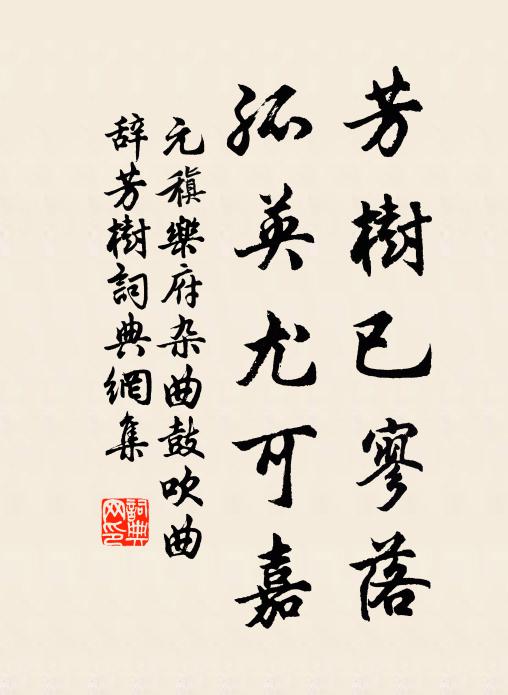 芳樹已寥落
孤英尤可嘉
元稹樂府杂曲鼓吹曲
辞芳樹詞典網集
詞典网印